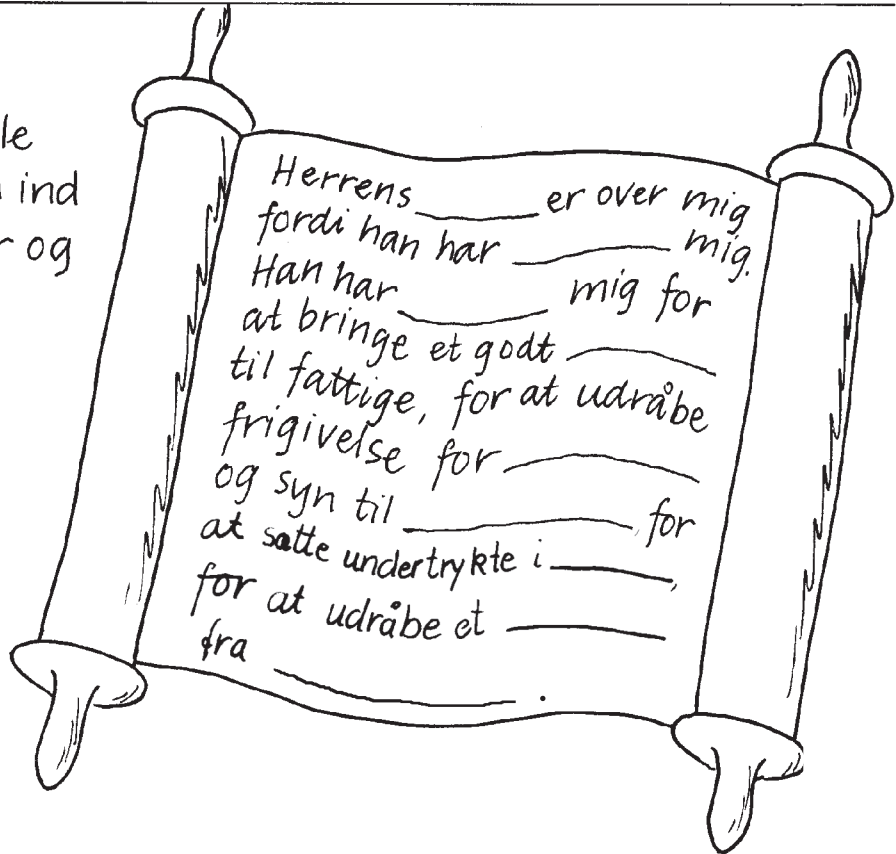 le
ind
r og
Herrens ______ er over mig
fordi han har ______ mig.
Han har ______ mig for
at bringe et godt ______
til fattige, for at udråbe
frigivelse for ______
og syn til ______, for
at sætte undertrykte i ______,
for at udråbe et ______
fra ______.